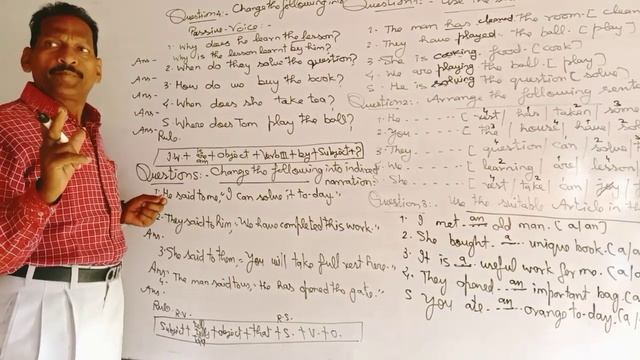 Question 4:- Change the following in
Passive-Voice:-
1. Why does he learn the lesson?
Why is the lesson learnt by him?
Ans-
2. When do they solve the question?
Ans-
3. How do we buy the book?
Ans-
4. When does she take tea?
Ans-
5. Where does Tom play the ball?
Rule
+ object + Verb III + by + Subject + ?
Question 5:- Change the following into indirect
narration:-
1. He said to me, "I can solve it to-day."
2. They said to him, "We have completed this work."
Ans-
3. She said to them - You will take full rest here."
Ans:-
4. The man said to us, He has opened the gate."
Ans-
Rule
R.V. R.S.
Subject + + object + that + S. + V. + O.
1. The man has cleared the room. [clean
2. They have played the ball. [play]
3. She is cooking food. [cook]
4. We are playing the ball. [play]
5. He is solving the question [solve]
Question 2:- Arrange the following sente
1. He [rest/his/taken/som
2. You [the/house/have/sol
3. They [question/can/solve/
4. We [learning/are/lesson
5. She [rest/take/can/
Question 3:- Use the suitable Article in th
1. I met an old man. (a/an)
2. She bought a unique book. (a/an
3. It is a useful work for me. (a/
4. They opened an important bag. (a
5. You ate an orange to-day. (a/